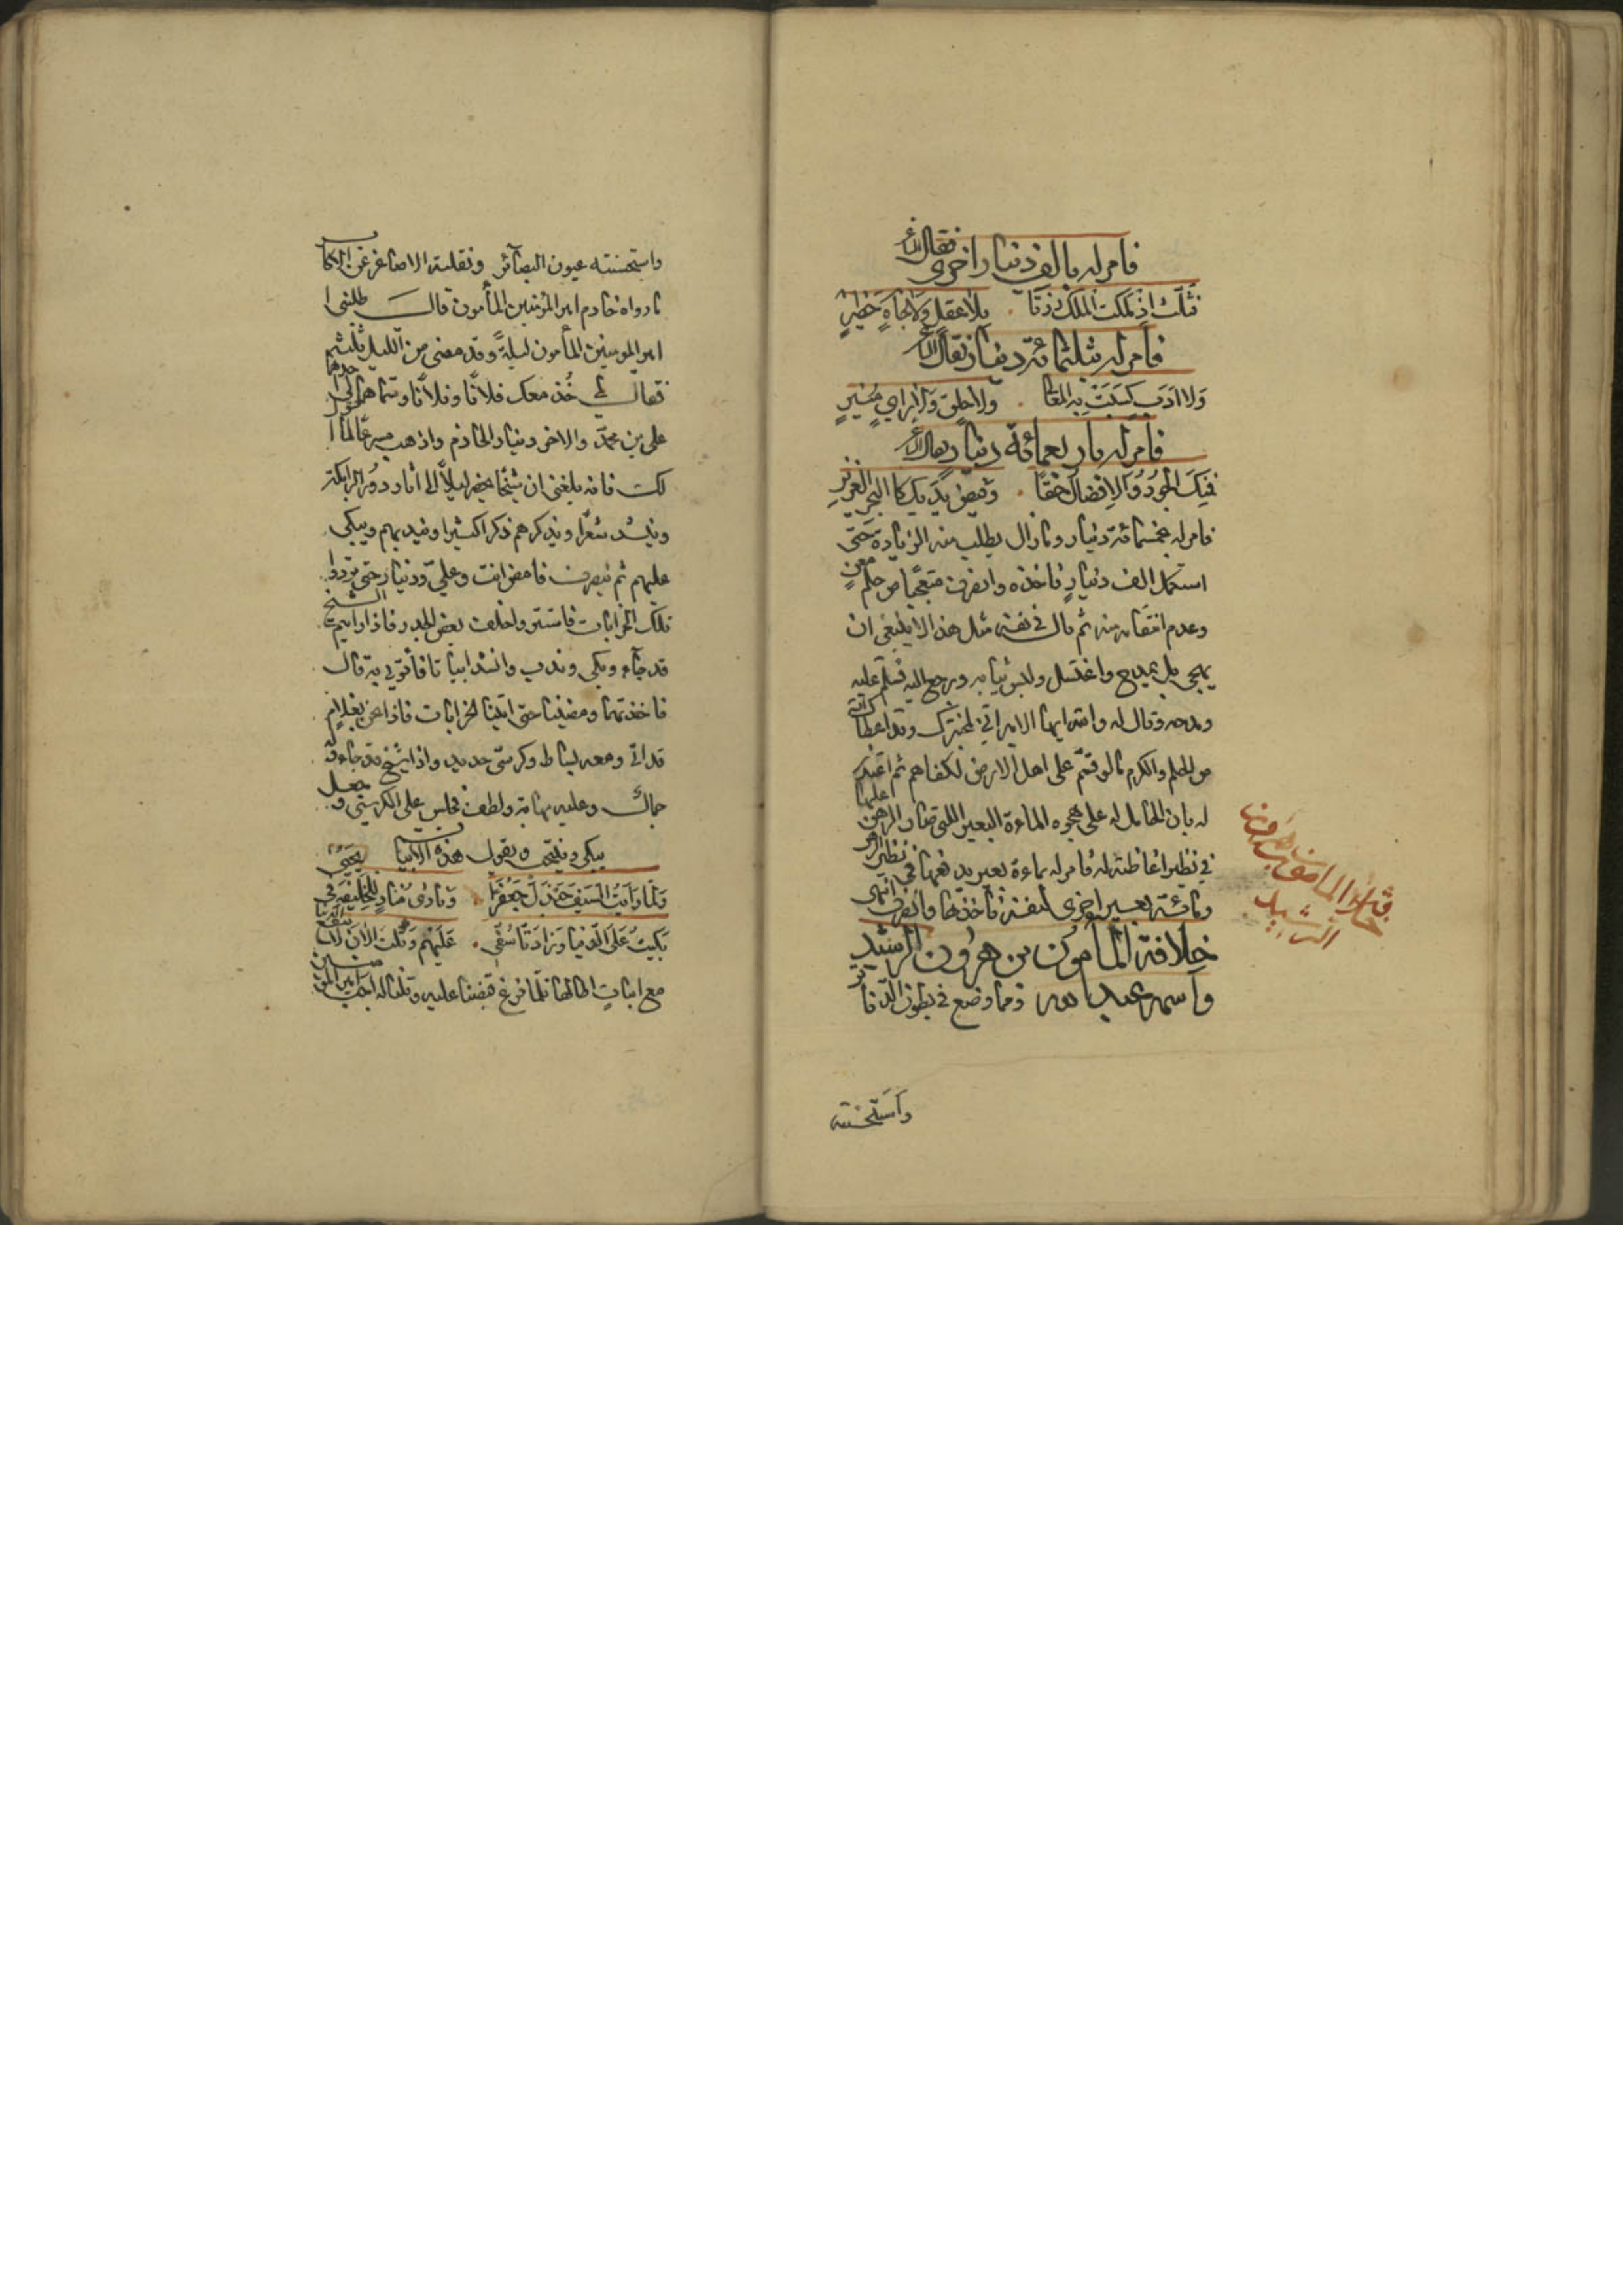 فامر له بالف دينار اخرى فقال الاعرابي
فثلث اذ ملكت الملك رزقا . بلا عقل ولا جاه خطير
فامر له بثلثمائة دينار فقال الاعرابي
ولا ادب كسبت به المعالي . ولا خلق ولا راي منير
فامر له باربعمائة دينار فقال الاعرابي
فنك الجود والافضال حقا . وفيض يديك كالبحر الغزير
فامر له بخمسمائة دينار وما زال يطلب منه الزيادة حتى
استكمل الف دينار فاخذه وانصرف متعجبا من حلم معن
وعدم انتقامه منه ثم قال في نفسه مثل هذا لا ينبغي ان
يهجى بل يمدح واغتسل ولبس ثيابه ورجع اليه فسلم عليه
ومدحه وقال له والله ايها الامير اتيت لمختبرك وقد اعطاك الله
من الحلم والكرم ما لو قسم على اهل الارض لكفاهم ثم اعتذر
له بان الحامل له على هجوه المائة البعير اللتي صار الرهن عليها
في نظير اغاظته له فامر له بمائة بعير يدفعها في نظير الرهن
ومائة بعير اخرى لنفسه فاخذها وانصرف انتهى
خلافة المأمون بن هرون الرشيد
واسمه عبد الله ومما وضع في بطون الدفاتر
خلافة المامون بن هرون
الرشيد
واستحسنته
واستحسنته عيون البصائر ونقلته الاصاغر عن الاكابر
ما رواه خادم امير المؤمنين المأمون قال طلبني
امير المومنين المأمون ليلة وقد مضى من الليل ثلثه
فقال لي خذ معك فلانا وفلانا وسماهما لي احدهما
علي بن محمد والاخر دينار الخادم واذهب مسرعا لما اقول
لك فانه بلغني ان شيخا يحضر ليلا الى اثار دور البرامكة
وينشد شعرا ويذكرهم ذكرا كثيرا ويندبهم ويبكي
عليهم ثم ينصرف فامض انت وعلي ودينار حتى تردوا
تلك الخرابات فاستتروا خلف بعض الجدر فاذا رايتم الشيخ
قد جاء وبكى وندب وانشد ابياتا فأتوني به قال
فاخذتهما ومضينا حتى اتينا الخرابات فاذا نحن بغلام
قد اتى ومعه بساط وكرسي حديد واذا شيخ قد جاء وله
جمال وعليه مهابة ولطف فجلس على الكرسي وجعل
يبكي وينتحب ويقول هذه الابيات
ولما رايت السيف جندل جعفرا . ونادى مناد للخليفة في يحيى
بكيت على الدنيا وزاد تأسفي . عليهم وقلت الان لا تنفع الدنيا
مع ابيات اطالها فلما فرغ قبضنا عليه وقلنا له اجب امير المؤمنين